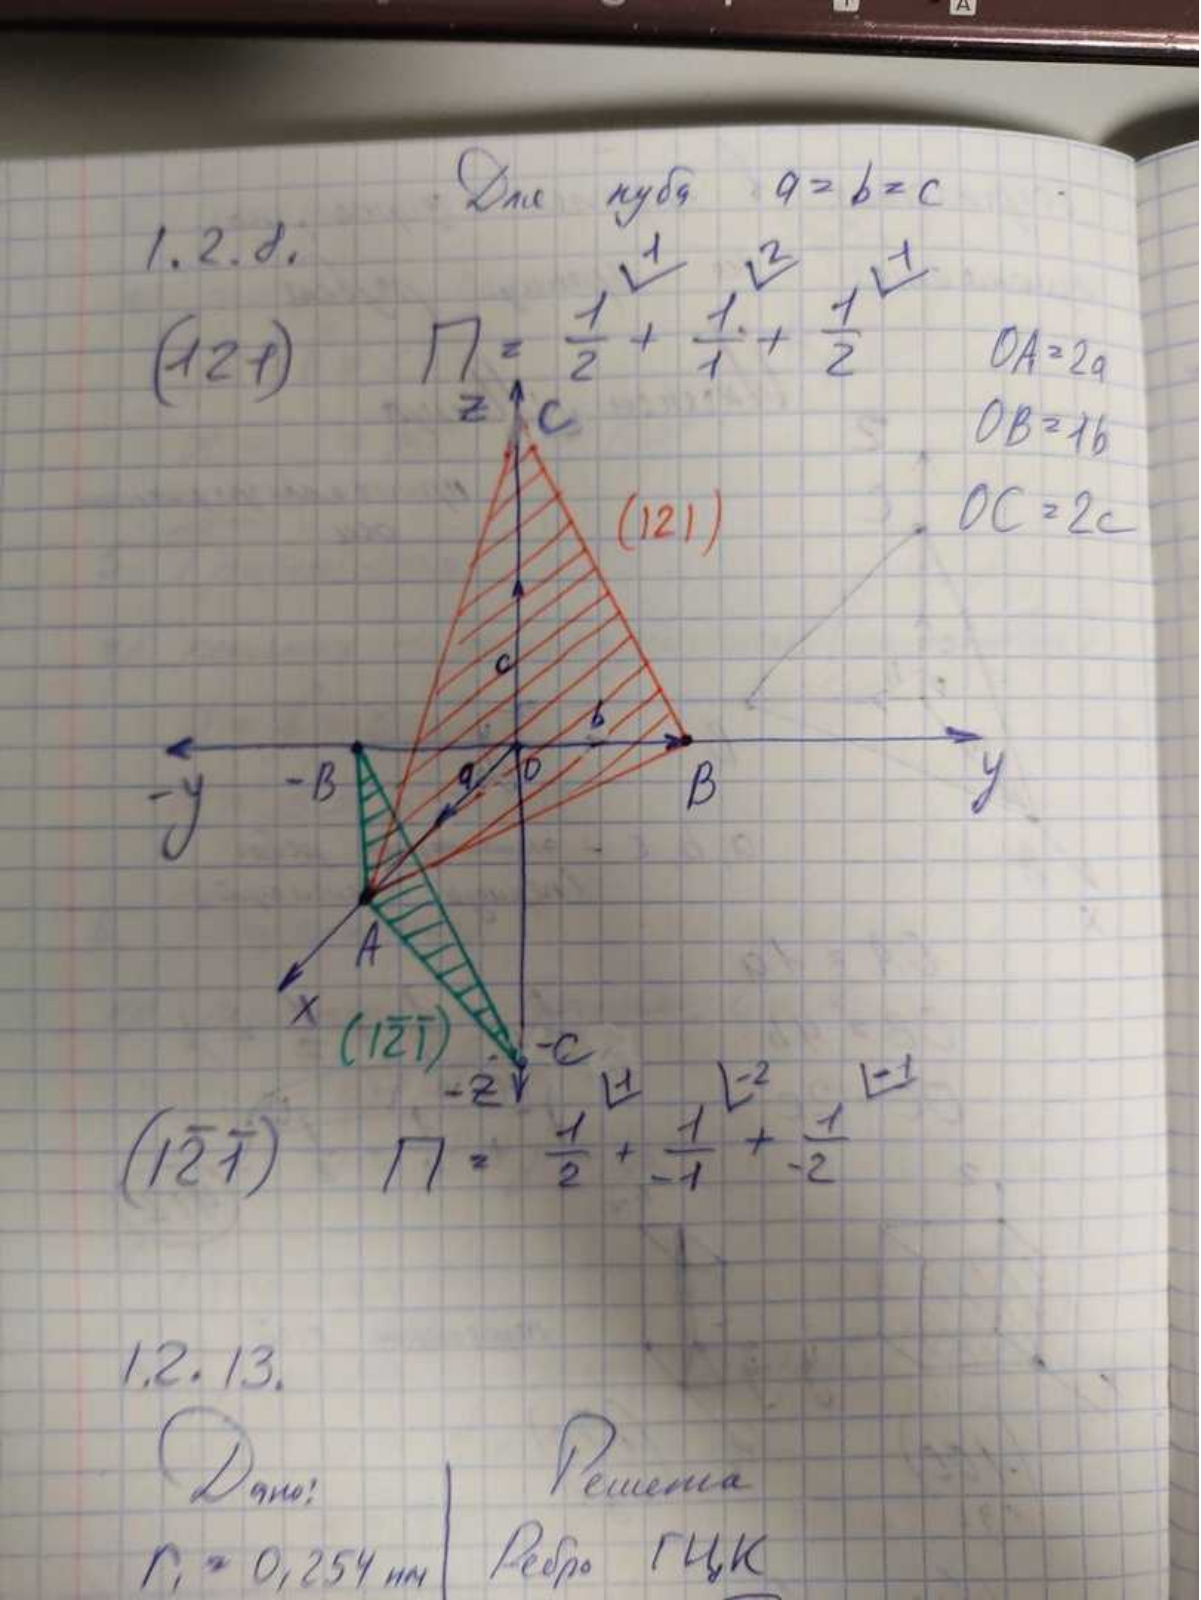 Для куба a = b = c
1.2.8.
(121) П = 1/2 ∟1 + 1/1 ∟2 + 1/2 ∟1
OA = 2a
OB = 1b
OC = 2c
z C
(121)
c
b
a O
-y -B B y
A
x
(12̄1̄)
-C
-z
(12̄1̄) П = 1/2 ∟1 + 1/-1 ∟-2 + 1/-2 ∟-1
1.2.13.
Дано: Решетка
r₁ = 0,254 нм Ребро ГЦК